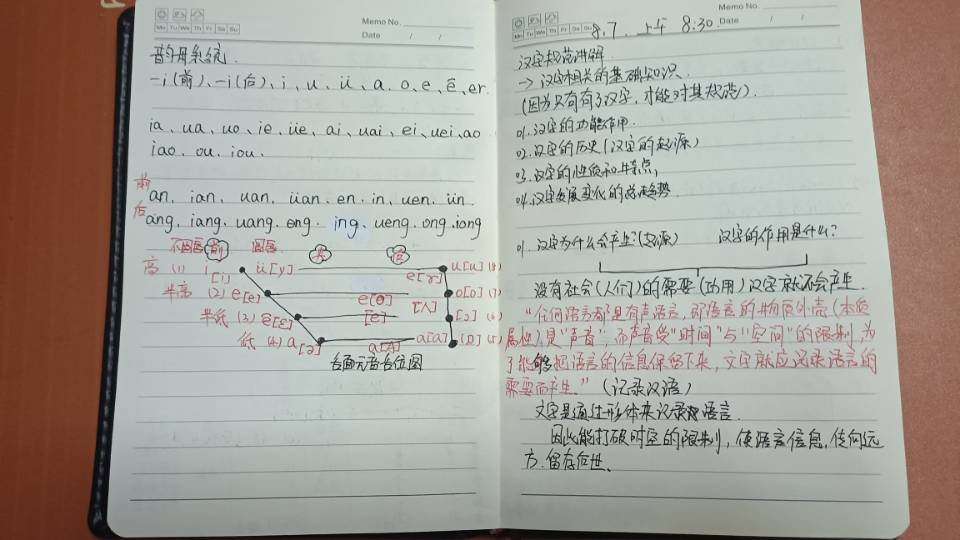 Memo No.
Mo Tu We Th Fr Sa Su
Date / /
韵母系统.
-i(前)、-i(后)、i、u、ü、a、o、e、ê、er.
ia、ua、uo、ie、üe、ai、uai、ei、uei、ao
iao、ou、iou、
前 an、ian、uan、üan、en、in、uen、ün
后 ang、iang、uang、eng、ing、ueng、ong、iong
不圆唇 前 圆唇 央 后
高 (1) i [i] ü[y] e[ɤ] u[u] (8)
半高 (2) e[e] e[ə] [ʌ] o[o] (7)
半低 (3) ê[ɛ] [ɐ] [ɔ] (6)
低 (4) a[a] a[A] a[ɑ] [ɒ] (5)
舌面元音舌位图
Memo No.
Mo Tu We Th Fr Sa Su
Date / /
8.7. 上午 8:30.
汉字规范讲解
→ 汉字相关的基础知识.
(因为只有有了汉字, 才能对其规范).
01. 汉字的功能作用.
02. 汉字的历史(汉字的起源)
03. 汉字的性质和特点,
04. 汉字发展变化的总趋势.
01. 汉字为什么会产生?(起源) 汉字的作用是什么?
没有社会(人们)的需要(功用)汉字就不会产生.
“任何语言都是有声语言, 即语言的物质外壳(本质
属性)是“声音”, 而声音受“时间”与“空间”的限制, 为
了能够把语言的信息保留下来, 文字就应记录语言的
需要而产生.” (记录汉语)
文字是通过形体来记录语言.
因此能打破时空的限制, 使语言信息, 传向远
方. 留存后世、